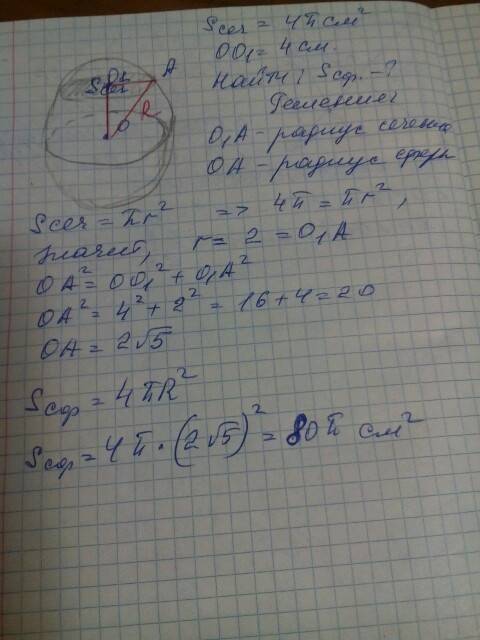 Sсеч = 4π см²
OO₁ = 4 см.
Найти: Sсф. - ?
Решение:
O₁A - радиус сечения
OA - радиус сферы
O₁
A
Sсеч
R
O
Sсеч = πr² => 4π = πr²,
значит, r = 2 = O₁A
OA² = OO₁² + O₁A²
OA² = 4² + 2² = 16 + 4 = 20
OA = 2√5
Sсф = 4πR²
Sсф = 4π · (2√5)² = 80π см²